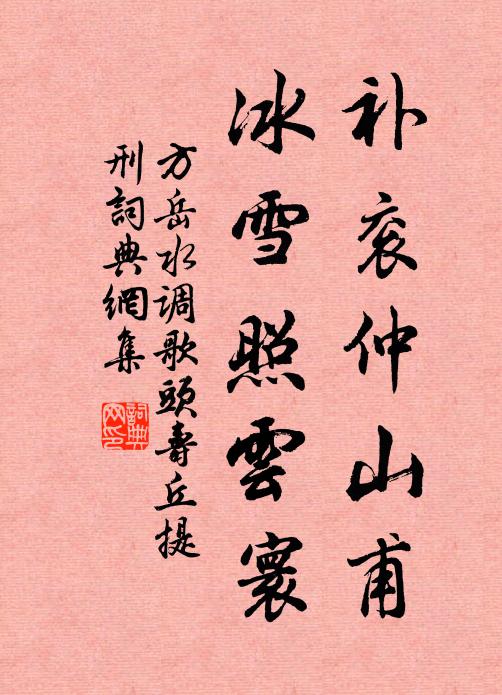 补衮仲山甫
冰雪照雲寰
方岳水调歌頭壽丘提
刑詞典網集
詞典
网印